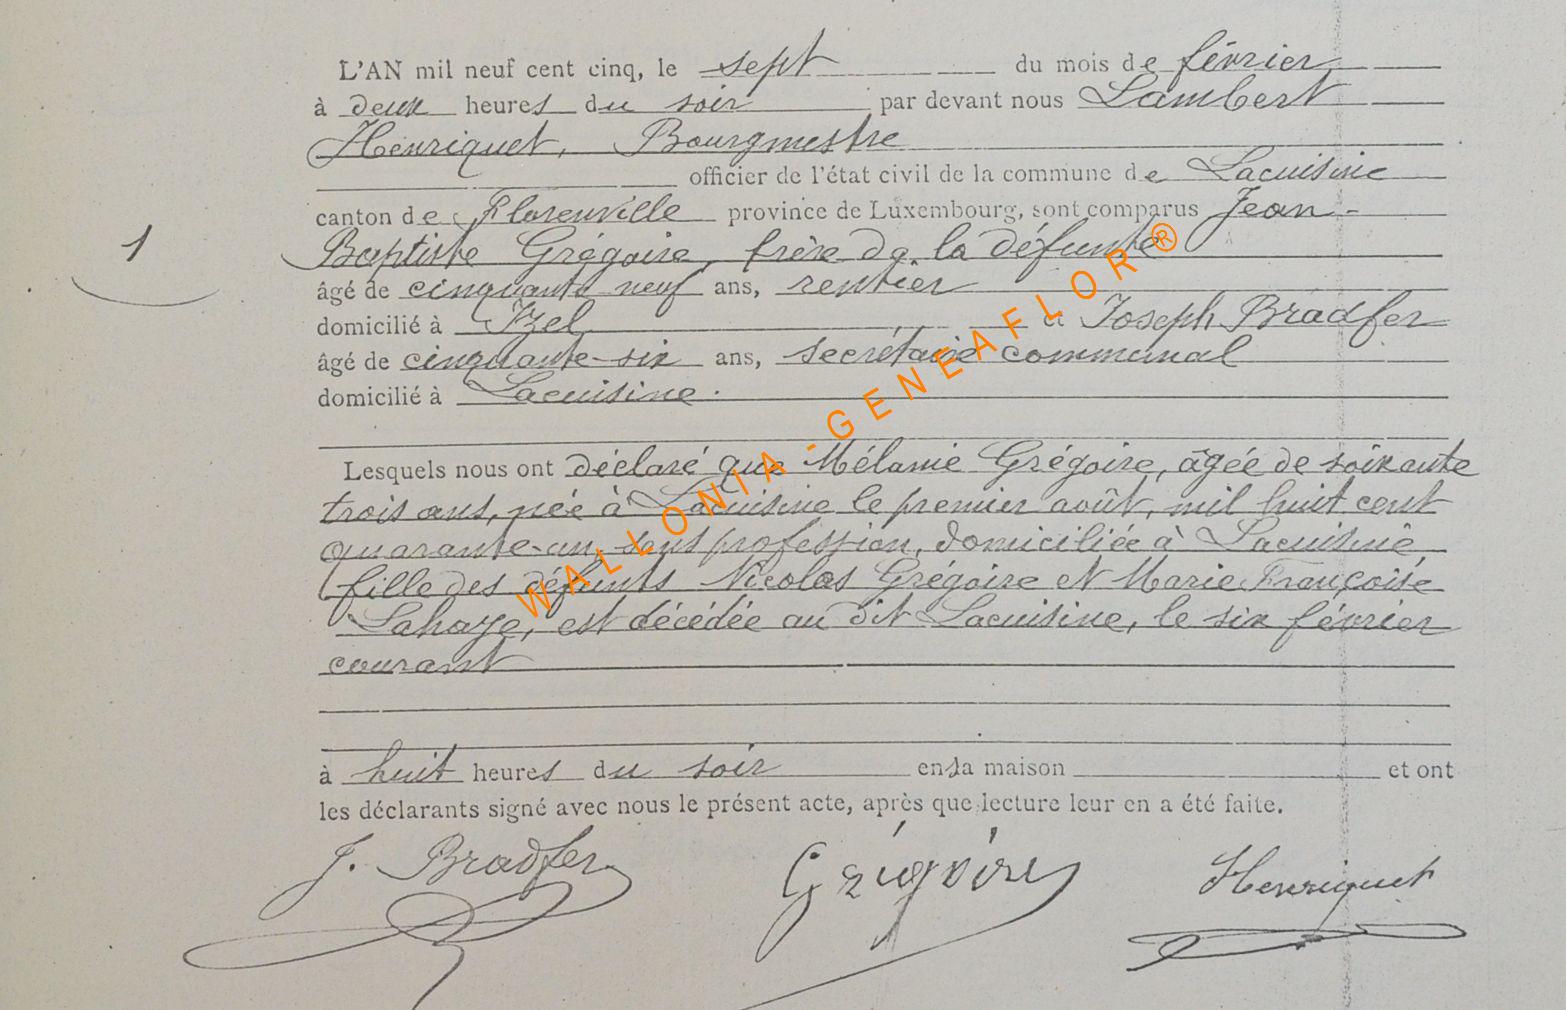 L'AN mil neuf cent cinq, le sept du mois de février
à deux heures du soir par devant nous Lambert
Henriquet, Bourgmestre
officier de l'état civil de la commune de Lacuisine
canton de Florenville province de Luxembourg, sont comparus Jean-
1
Baptiste Grégoire, frère de la défunte
âgé de cinquante neuf ans, rentier
domicilié à Izel et Joseph Bradfer
âgé de cinquante-six ans, secrétaire communal
domicilié à Lacuisine.
Lesquels nous ont déclaré que Mélanie Grégoire, âgée de soixante
trois ans, née à Lacuisine le premier août, mil huit cent
quarante-un, sans profession, domiciliée à Lacuisine,
fille des défunts Nicolas Grégoire et Marie Françoise
Lahaye, est décédée au dit Lacuisine, le six février
courant
à huit heures du soir en sa maison et ont
les déclarants signé avec nous le présent acte, après que lecture leur en a été faite.
J. Bradfer Grégoire Henriquet
WALLONIA-GENEAFLOR®